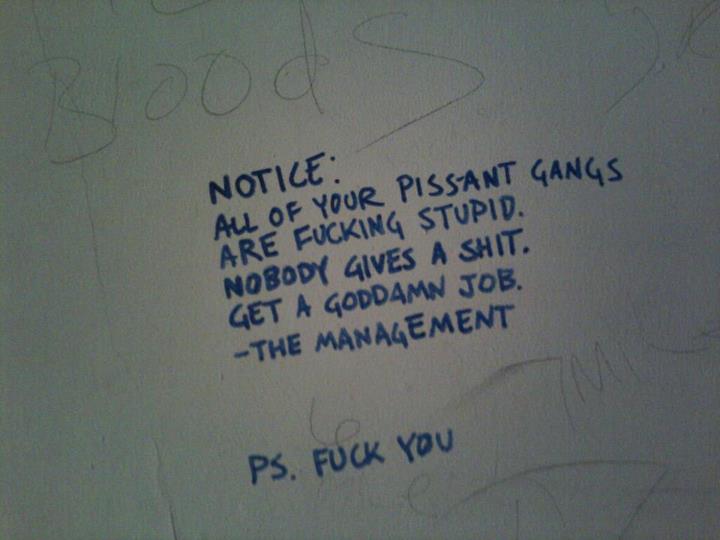 BloodS
NOTICE:
ALL OF YOUR PISSANT GANGS
ARE FUCKING STUPID.
NOBODY GIVES A SHIT.
GET A GODDAMN JOB.
-THE MANAGEMENT
PS. FUCK YOU